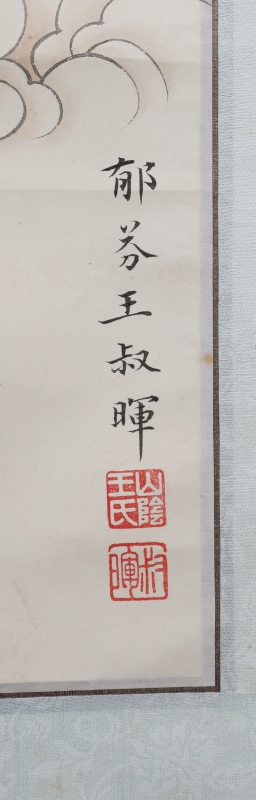 郁芬王叔暉
山陰王氏
叔暉